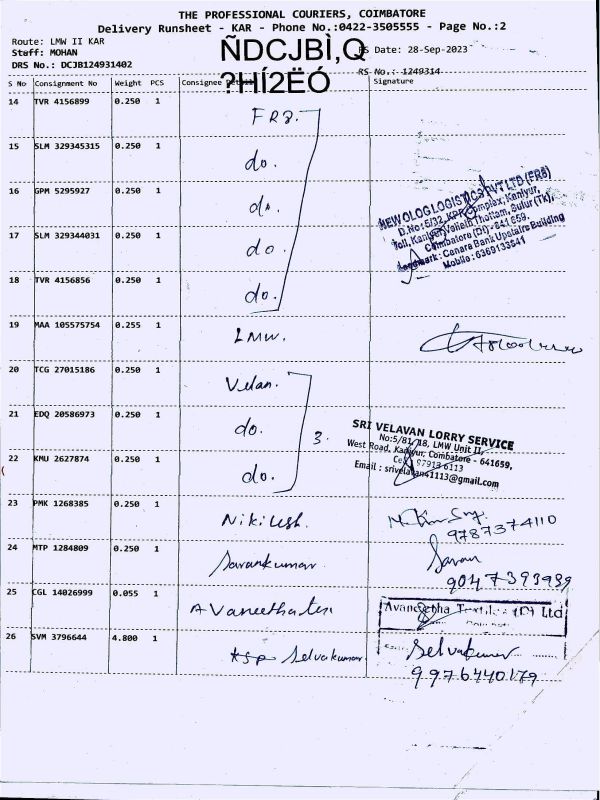 THE PROFESSIONAL COURIERS, COIMBATORE
Delivery Runsheet - KAR - Phone No.:0422-3505555 - Page No.:2
Route: LMW II KAR
Staff: MOHAN
RS Date: 28-Sep-2023
DRS No.: DCJB124931402
ÑDCJBÌ,Q
?HÍ2ËÓ
RS No.: 1249314
S No Consignment No Weight PCS Consignee Signature
14 TVR 4156899 0.250 1 FRB.
15 SLM 329345315 0.250 1 do.
16 GPM 5295927 0.250 1 do.
NEW OLOG LOGISTICS PVT LTD (FRB)
D.No: 6/32, KPR Complex, Kaniyur,
Toll, Kaniyur, Thottam, Sulur (Tk),
Coimbatore (Dt) - 641 659.
Landmark: Canara Bank Upstairs Building
Mobile: 6369133541
17 SLM 329344031 0.250 1 do.
18 TVR 4156856 0.250 1 do.
19 MAA 105575754 0.255 1 LMW.
20 TCG 27015186 0.250 1 Velan.
21 EDQ 20586973 0.250 1 do.
3.
SRI VELAVAN LORRY SERVICE
No:5/81, 18, LMW Unit II,
West Road, Kaniyur, Coimbatore - 641659,
Email : srivelavan41113@gmail.com
22 KMU 2627874 0.250 1 do.
23 PMK 1268385 0.250 1 Nikilesh.
9787374110
24 MTP 1284809 0.250 1 Saravkumar
Saran
9047393939
25 CGL 14026999 0.055 1 AVaneethatex
Avaneetha Textiles (P) Ltd
26 SVM 3796644 4.800 1 Selvakumar.
Selvakumar
9976440179